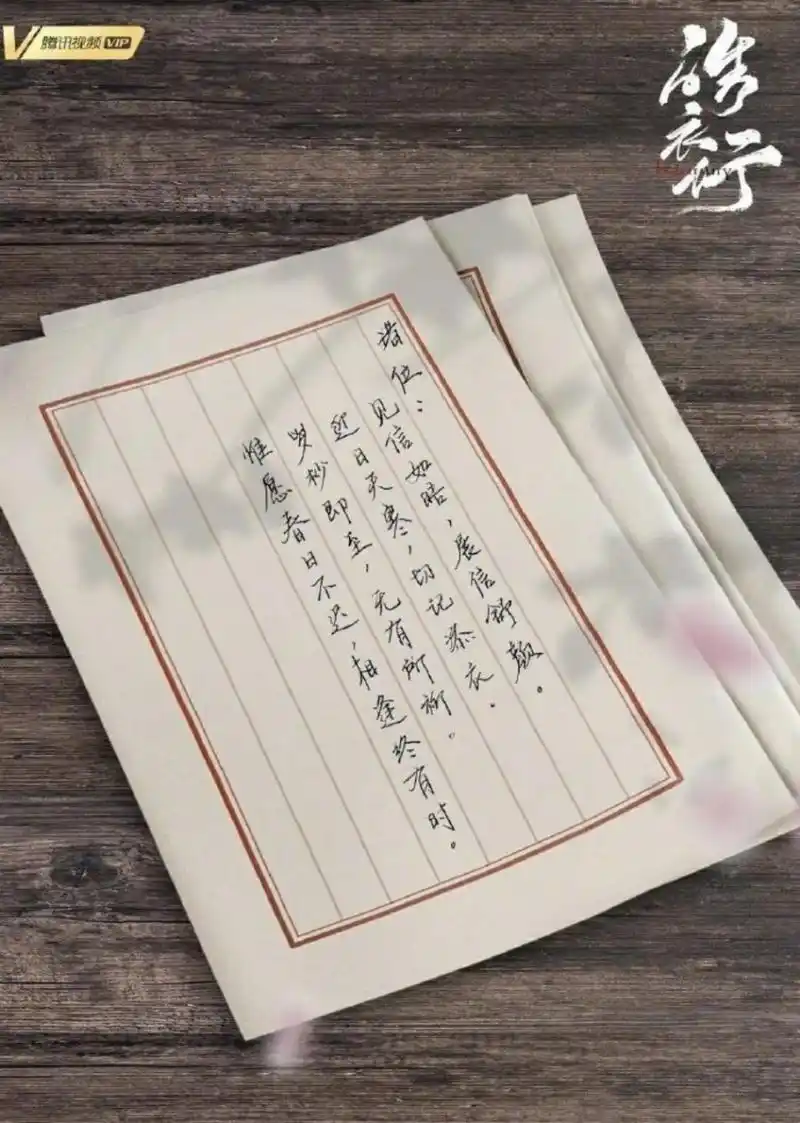 腾讯视频 VIP
皓衣行
诸位：
见信如晤，展信舒颜。
近日天寒，切记添衣。
岁杪即至，无有所柳。
惟愿春日不迟，相逢终有时。